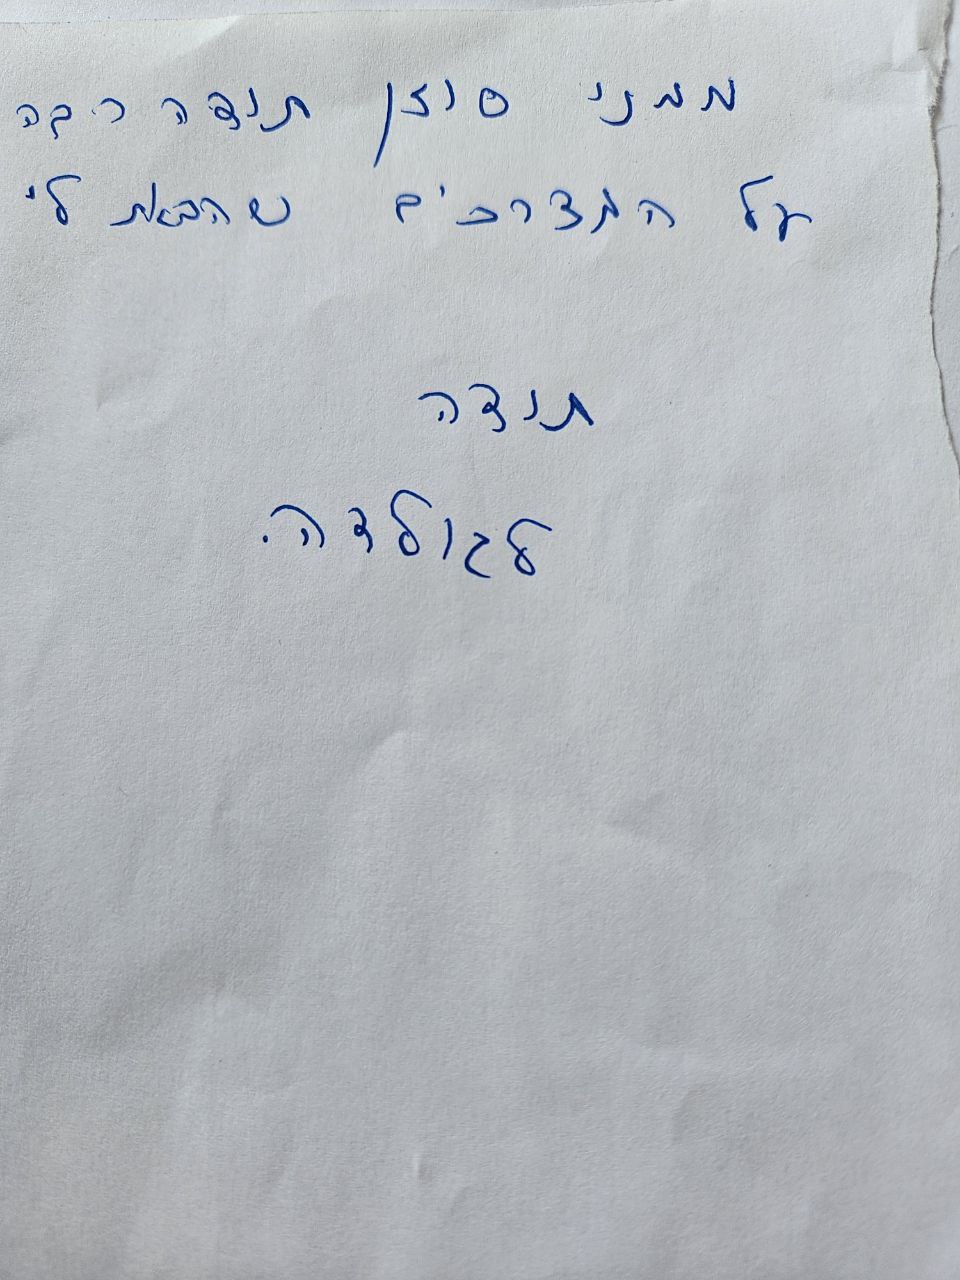 ממני סוזן תודה רבה
על המדרכים שהבאת לי
תודה
לגולדה.